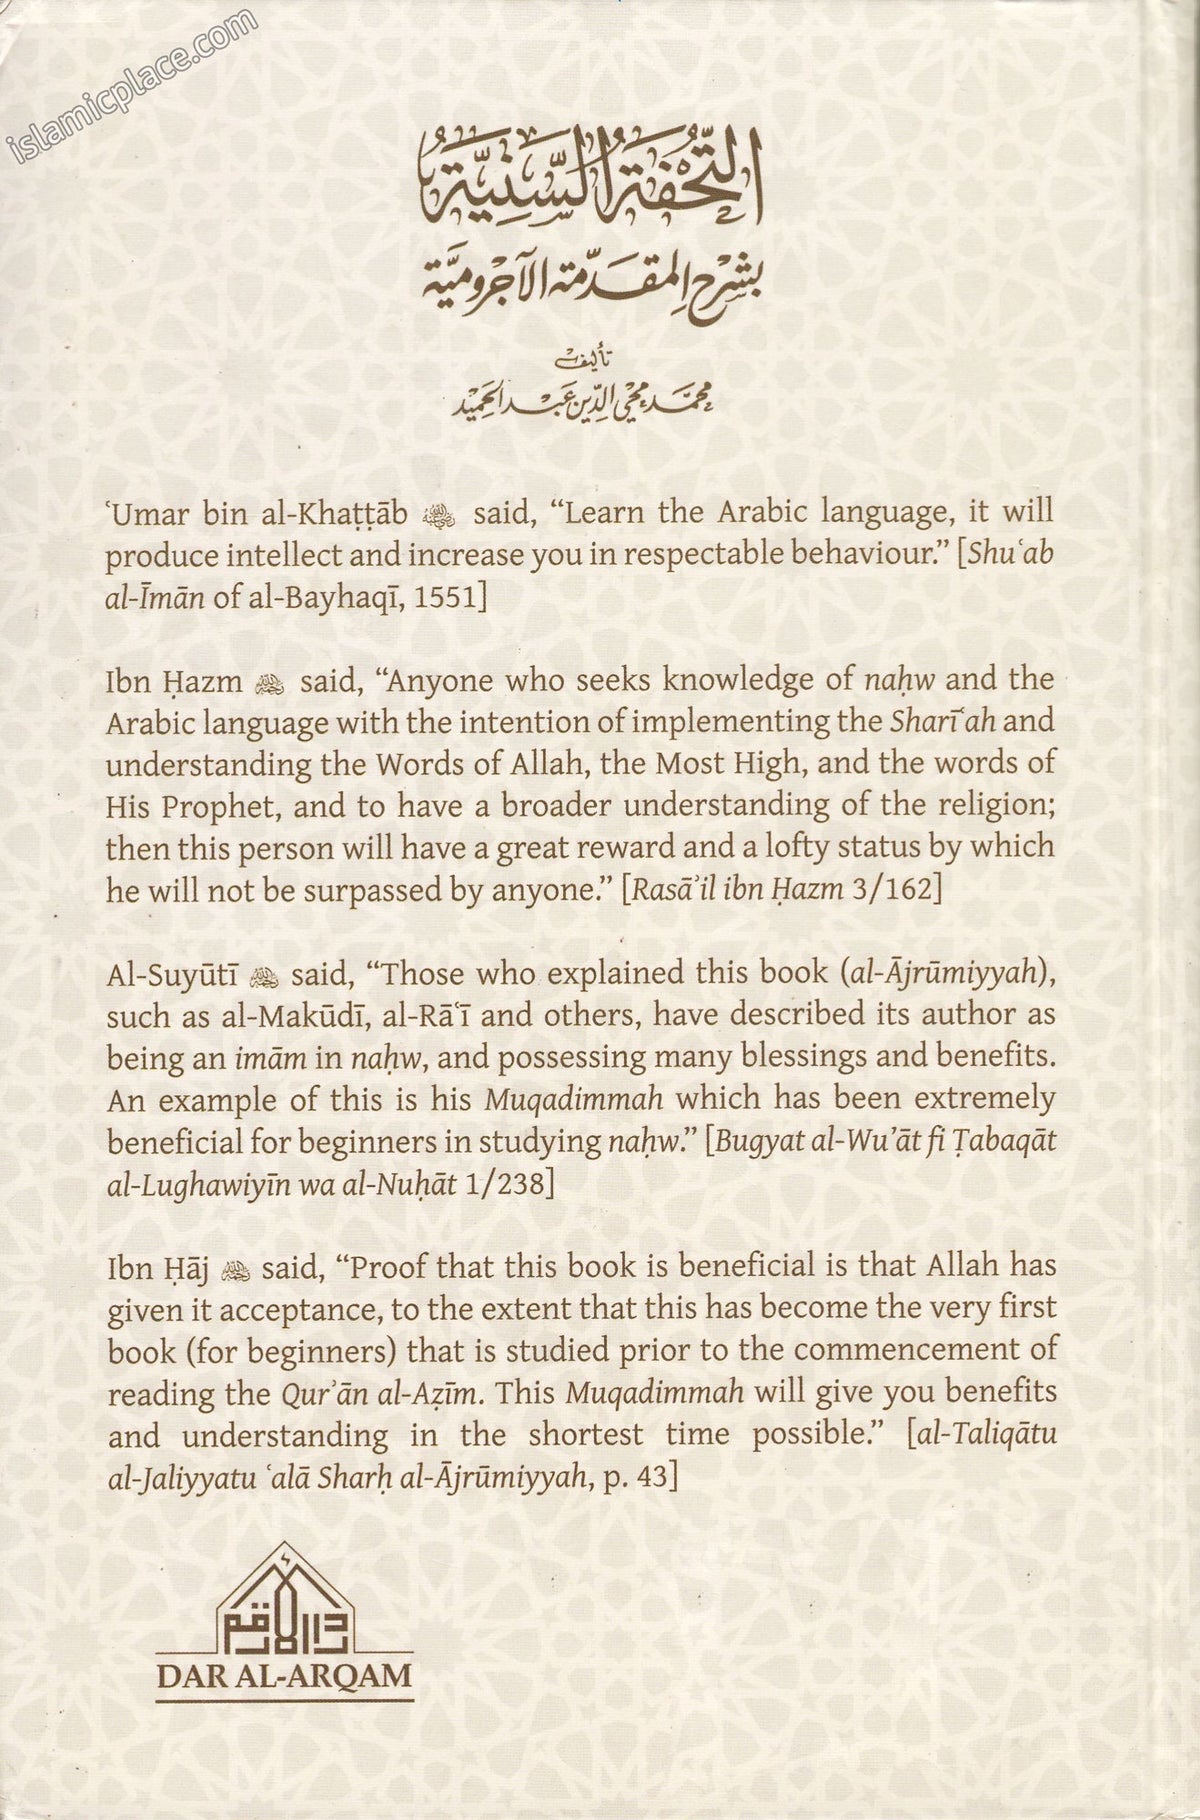 islamicplace.com
التُّحْفَةُ السَّنِيَّةُ
بِشَرْحِ المقَدِّمَة الآجُرُوميَّة
تأليف
محمَّد محيي الدِّين عَبْد الحَمِيْد
ʿUmar bin al-Khaṭṭāb ؓ said, “Learn the Arabic language, it will
produce intellect and increase you in respectable behaviour.” [Shuʿab
al-Īmān of al-Bayhaqī, 1551]
Ibn Ḥazm said, “Anyone who seeks knowledge of naḥw and the
Arabic language with the intention of implementing the Sharīʿah and
understanding the Words of Allah, the Most High, and the words of
His Prophet, and to have a broader understanding of the religion;
then this person will have a great reward and a lofty status by which
he will not be surpassed by anyone.” [Rasāʾil ibn Ḥazm 3/162]
Al-Suyūtī said, “Those who explained this book (al-Ājrūmiyyah),
such as al-Makūdī, al-Rāʿī and others, have described its author as
being an imām in naḥw, and possessing many blessings and benefits.
An example of this is his Muqadimmah which has been extremely
beneficial for beginners in studying naḥw.” [Bugyat al-Wu’āt fi Ṭabaqāt
al-Lughawiyīn wa al-Nuḥāt 1/238]
Ibn Ḥāj said, “Proof that this book is beneficial is that Allah has
given it acceptance, to the extent that this has become the very first
book (for beginners) that is studied prior to the commencement of
reading the Qurʾān al-Aẓīm. This Muqadimmah will give you benefits
and understanding in the shortest time possible.” [al-Taliqātu
al-Jaliyyatu ʿalā Sharḥ al-Ājrūmiyyah, p. 43]
دار الأرقم
DAR AL-ARQAM